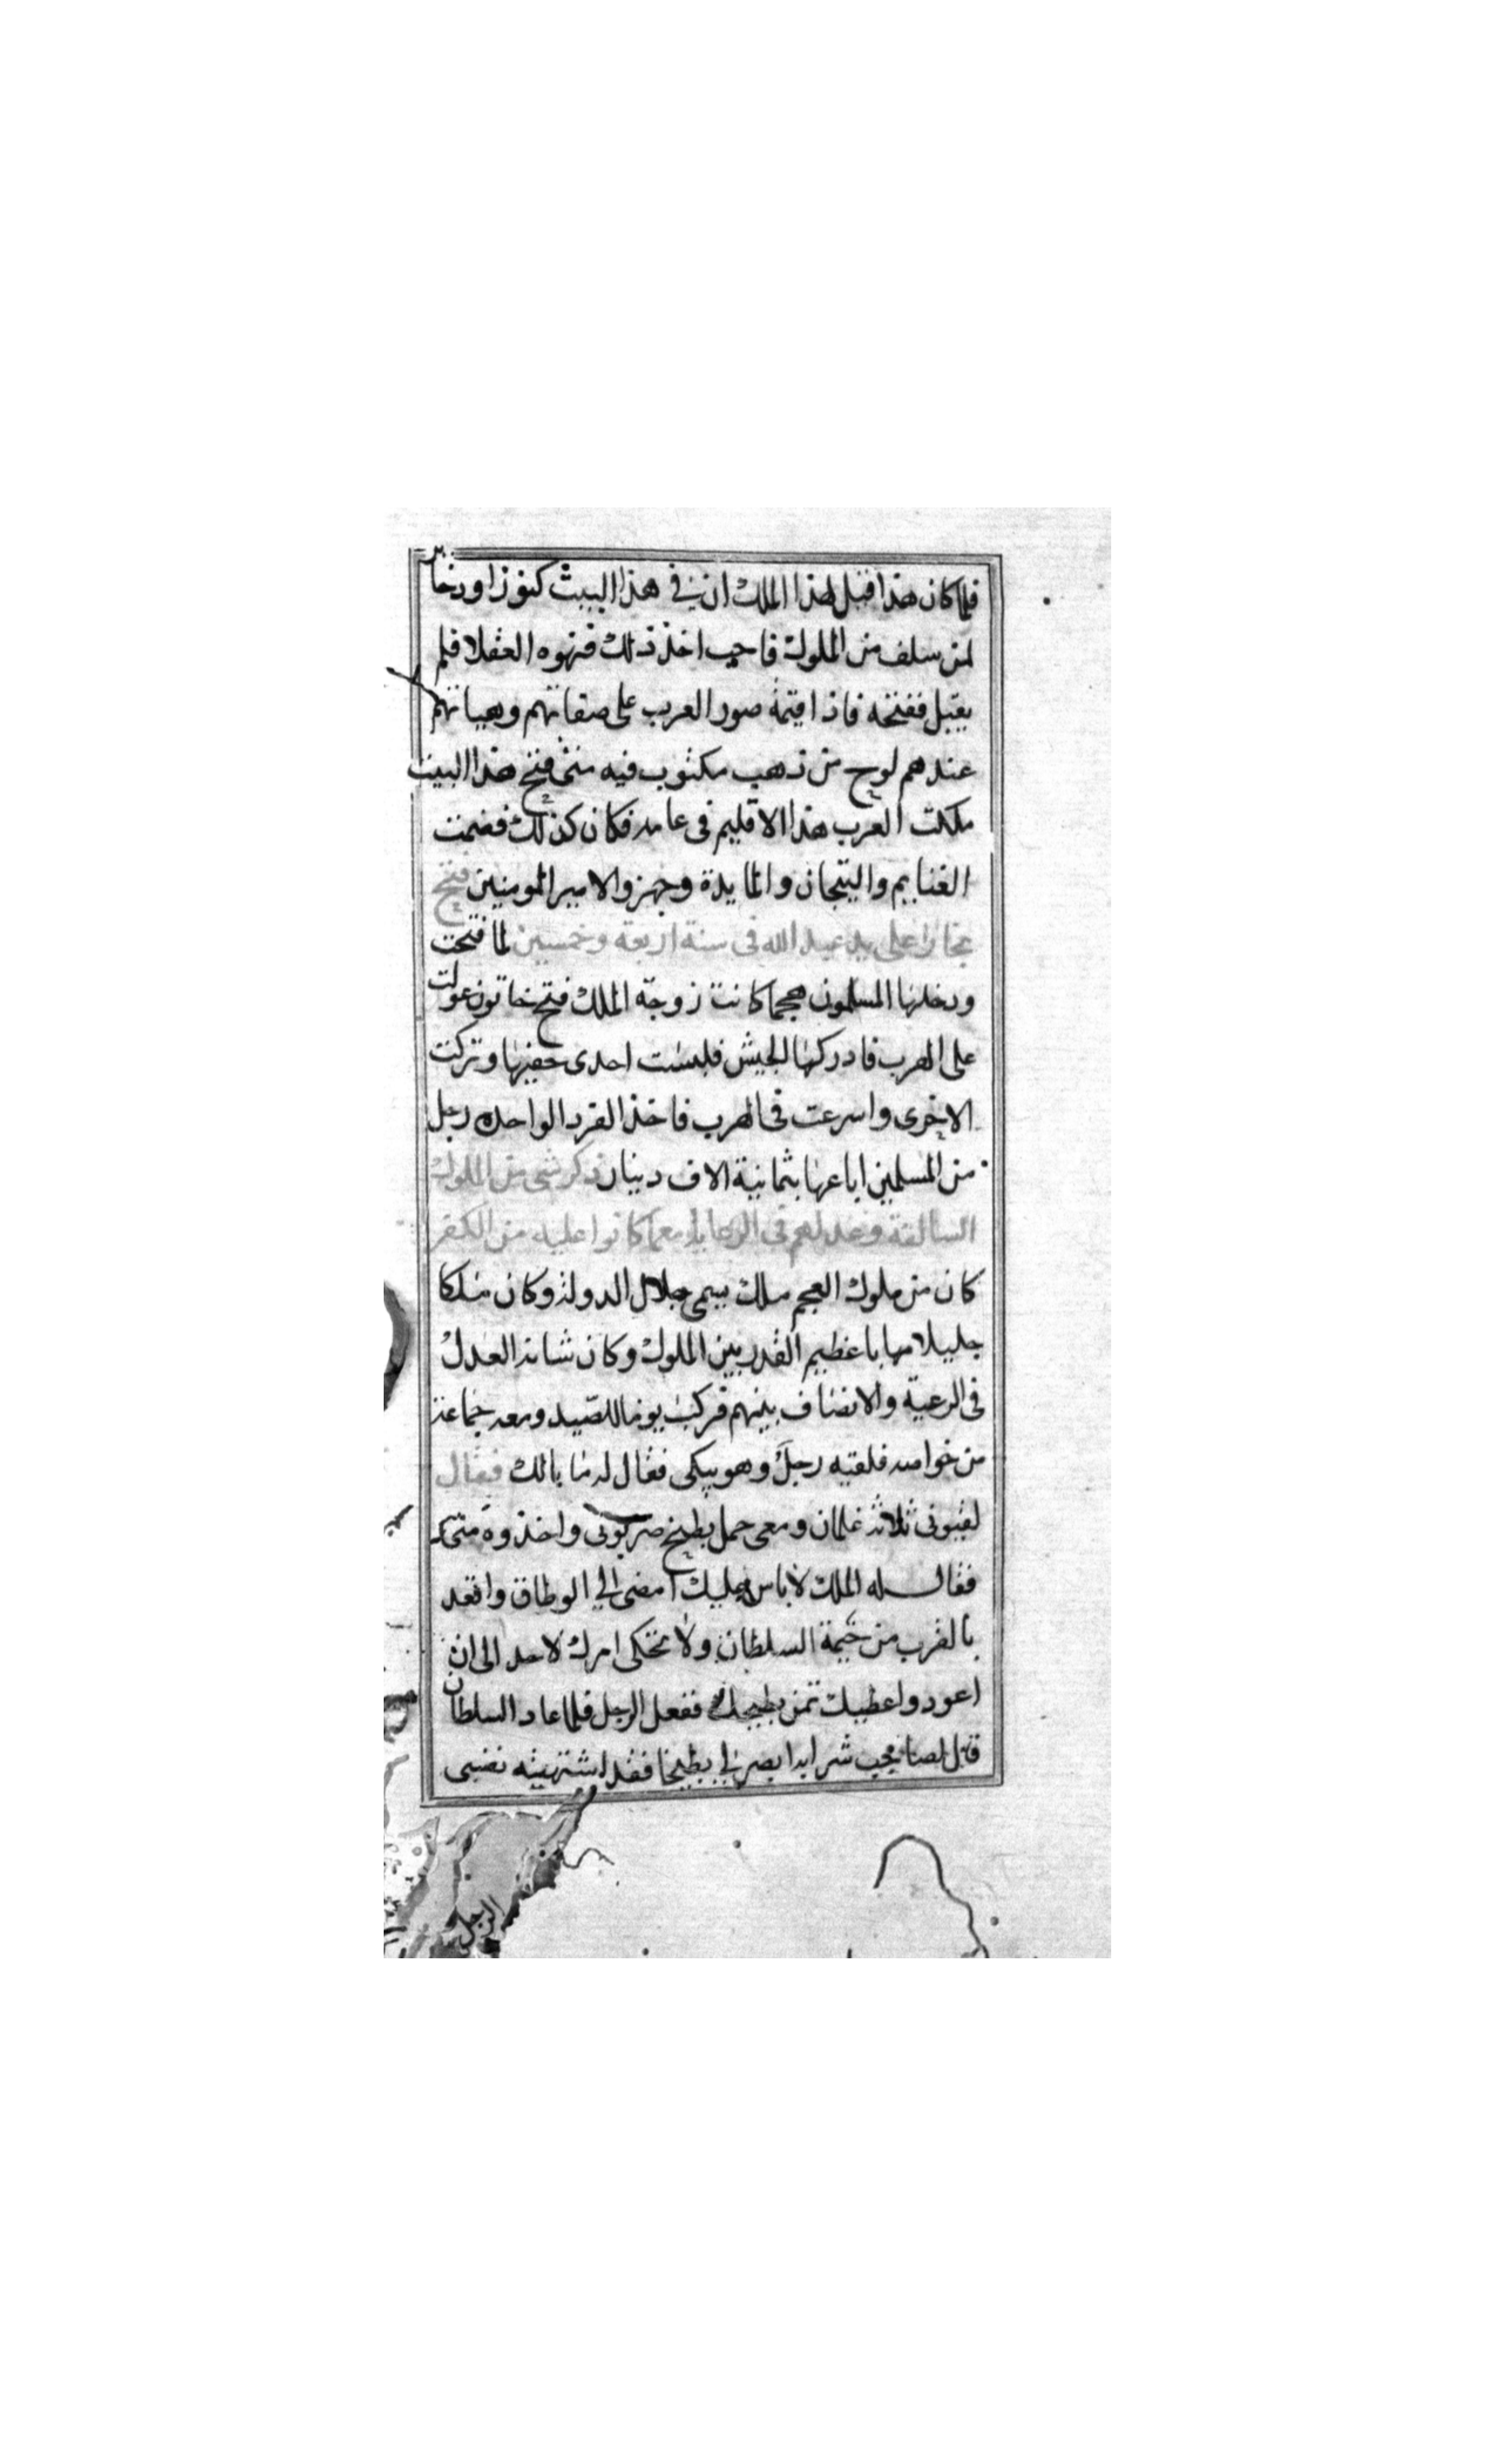 فلما كان هذا قبل لهذا الملك ان في هذا البيت كنوزا ودخاير
لمن سلف من الملوك فاحب اخذ ذلك فنهوه العقلا فلم
يقبل ففتحه فاذا فيه صور العرب على صفاتهم وهياتهم
عندهم لوح من ذهب مكتوب فيه متى فتح هذا البيت
ملكت العرب هذا الاقليم في عامه فكان كذلك فضمت
الغنايم والتيجان والمايدة وجهزوا لامير المومنين فتح
بخارا على يد عبد الله في سنة اربعة وخمسين لما فتحت
ودخلها المسلمون هجما كانت زوجة الملك فتح خاتون عولت
على الهرب فادركها الجيش فلبست احدى خفيها وتركت
الاخرى واسرعت في الهرب فاخذ الفرد الواحده رجل
من المسلمين اباعها بثمانية الاف دينار ذكر شي من الملوك
السالفة وعدلهم في الرعايا مع ما كانوا عليه من الكفر
كان من ملوك العجم ملك يسمى جلال الدولة وكان ملكا
جليلا مهابا عظيم القدر بين الملوك وكان شانه العدل
في الرعية والانصاف بينهم فركب يوما للصيد ومعه جماعة
من خواصه فلقيه رجل وهو يبكى فقال له ما بالك فقال
لقيونى ثلاثة غلمان ومعى حمل بطيخ ضربونى واخذوه منى
فقال له الملك لا باس عليك امضى الي الوطاق واقعد
بالقرب من خيمة السلطان ولا تحكى امرك لاحد الى ان
اعود واعطيك ثمن بطيخك ففعل الرجل فلما عاد السلطان
قال لصاحب شرابه ابصر لي بطيخا فقد اشتهيته نفسى
الرجل